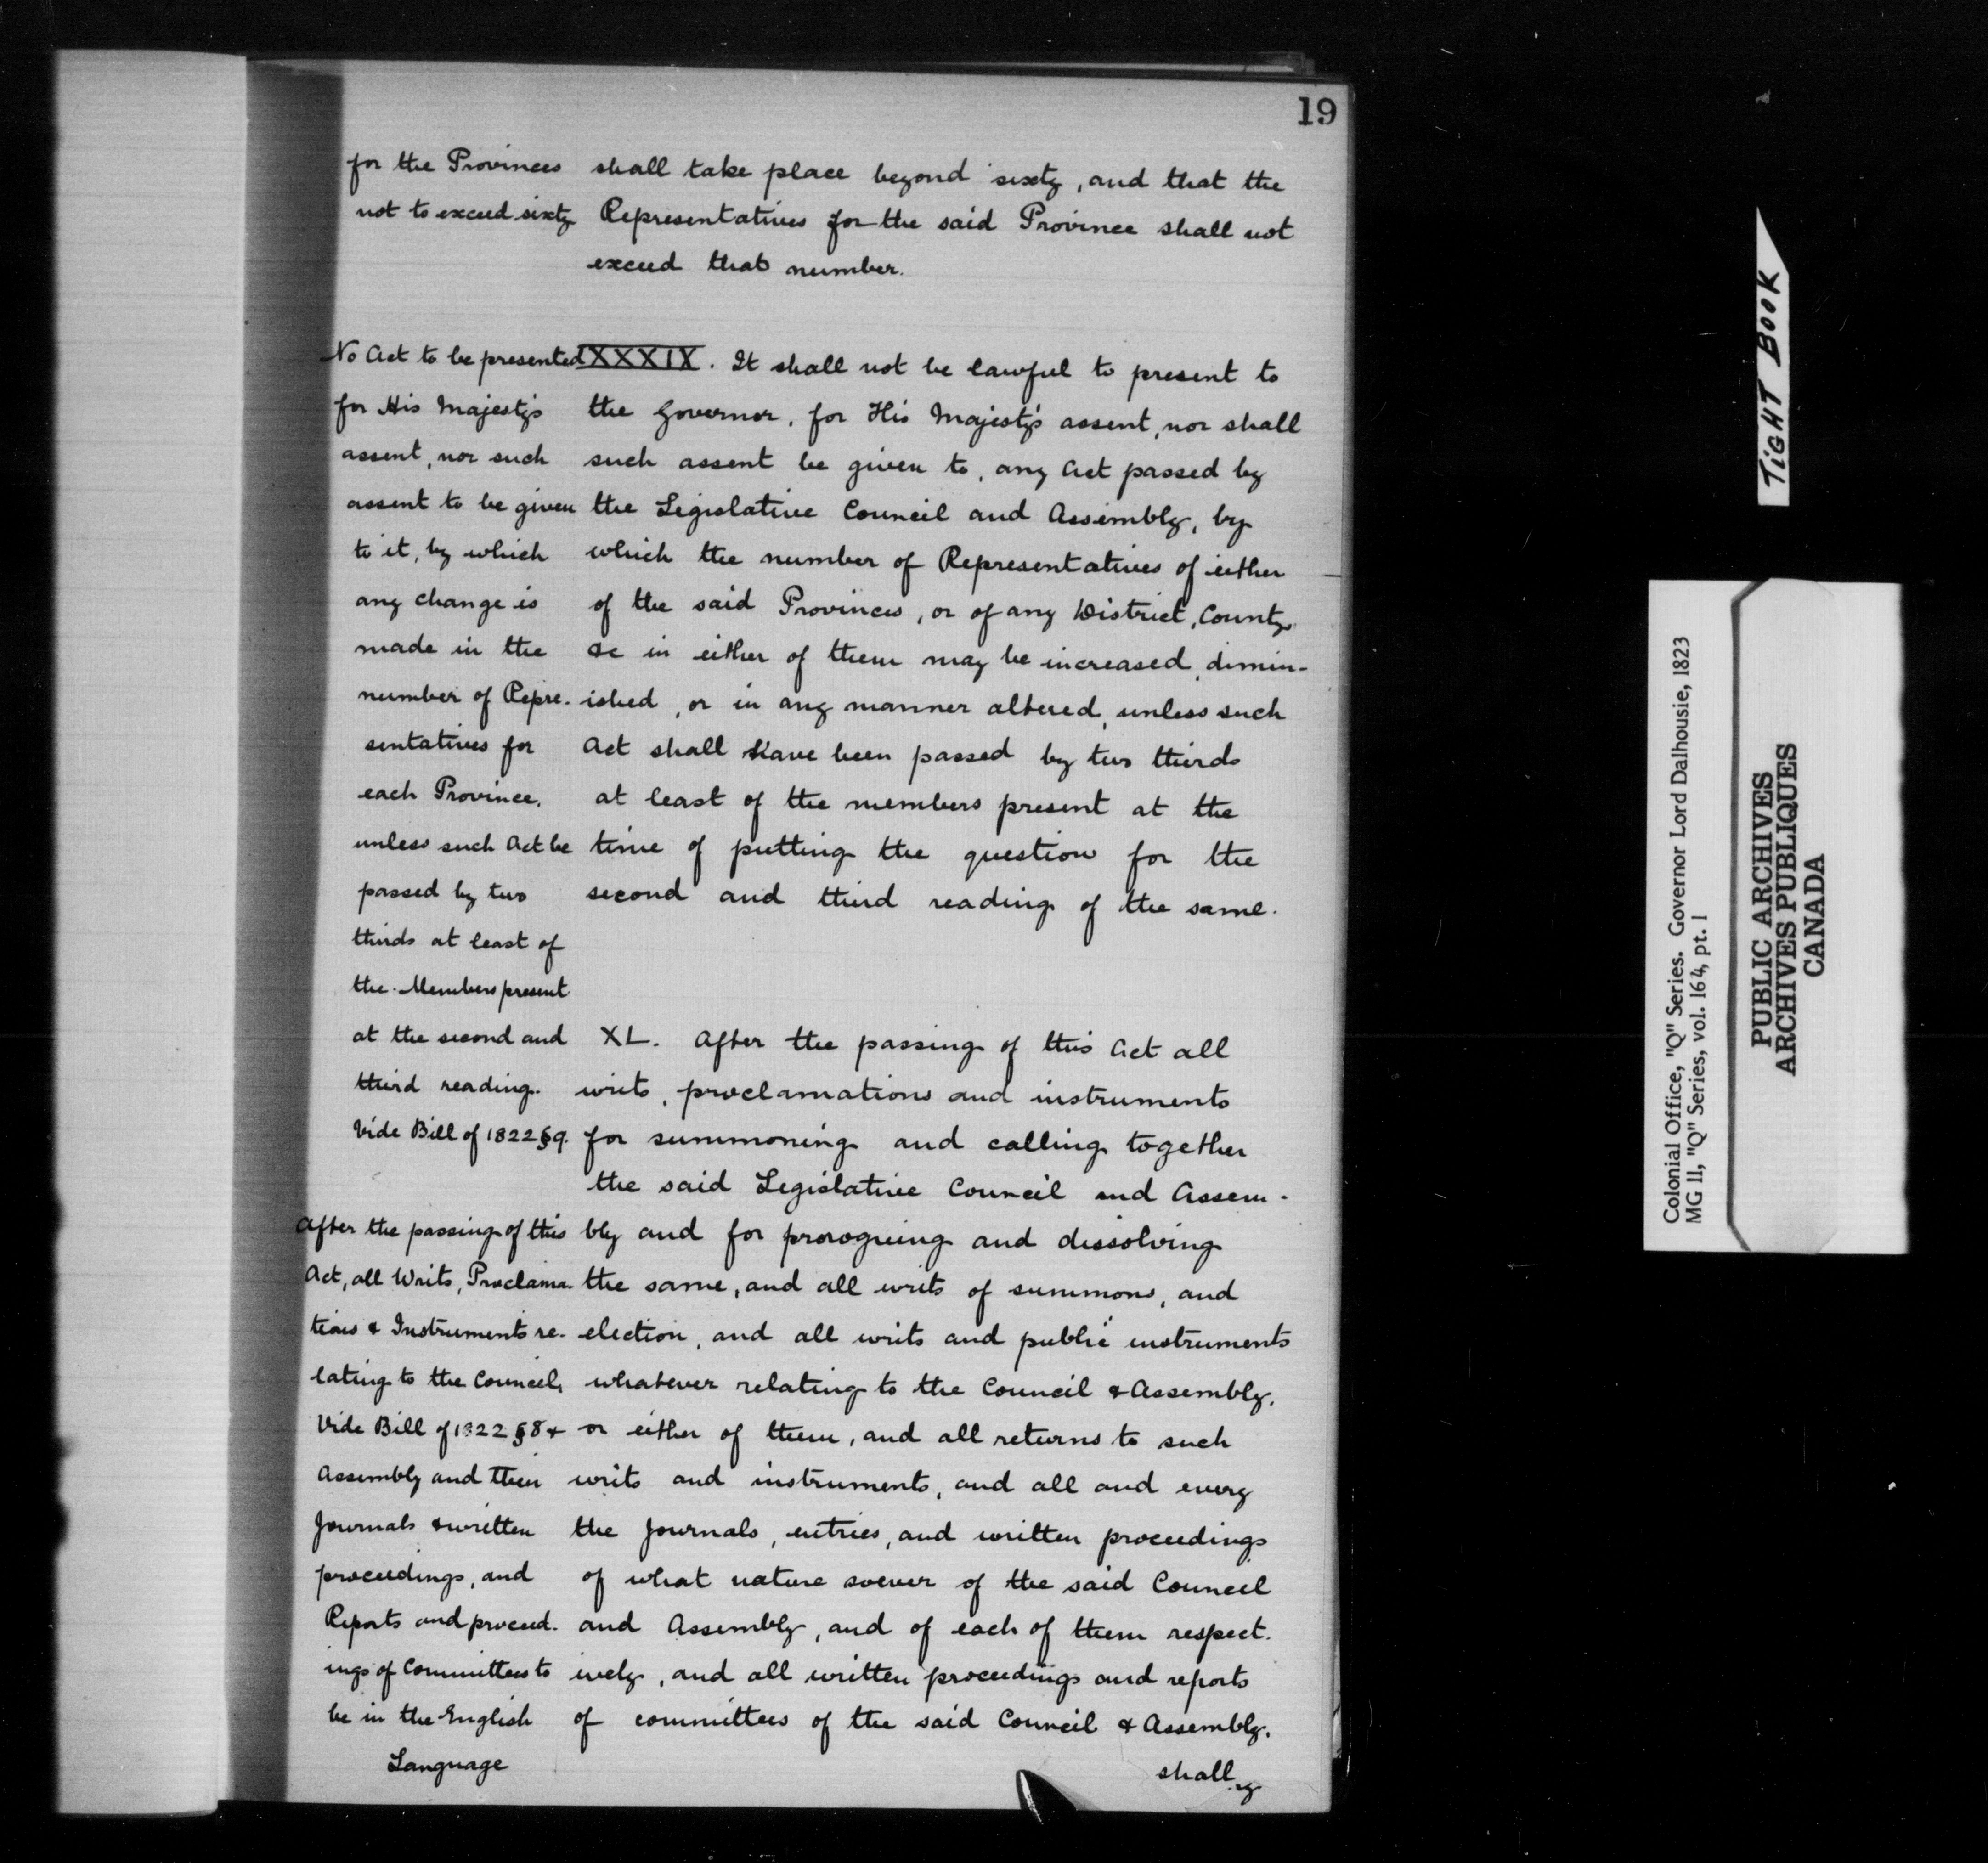 19
for the Provinces
not to exceed sixty
shall take place beyond sixty, and that the
Representatives for the said Province shall not
exceed that number.
No Act to be presented
for His Majesty's
assent, nor such
assent to be given
to it, by which
any change is
made in the
number of Repre-
sentatives for
each Province,
unless such Act be
passed by two
thirds at least of
the Members present
at the second and
third reading.
Vide Bill of 1822 § 9.
XXXIX. It shall not be lawful to present to
the Governor, for His Majesty's assent, nor shall
such assent be given to, any Act passed by
the Legislative Council and Assembly, by
which the number of Representatives of either
of the said Provinces, or of any District, County
&c in either of them may be increased, dimin-
ished, or in any manner altered, unless such
Act shall have been passed by two thirds
at least of the members present at the
time of putting the question for the
second and third reading of the same.
After the passing of this
Act, all Writs, Proclama-
tions & Instruments re-
lating to the Council,
Vide Bill of 1822 § 8 &
Assembly and their
Journals & written
proceedings, and
Reports and proceed-
ings of Committees to
be in the English
Language
XL. After the passing of this Act all
writs, proclamations and instruments
for summoning and calling together
the said Legislative Council and Assem-
bly and for proroguing and dissolving
the same, and all writs of summons, and
election, and all writs and public instruments
whatever relating to the Council & Assembly,
or either of them, and all returns to such
writs and instruments, and all and every
the Journals, entries, and written proceedings
of what nature soever of the said Council
and Assembly, and of each of them respect-
ively, and all written proceedings and reports
of committees of the said Council & Assembly,
shall
TIGHT BOOK
Colonial Office, "Q" Series. Governor Lord Dalhousie, 1823
MG 11, "Q" Series, vol. 164, pt. 1
PUBLIC ARCHIVES
ARCHIVES PUBLIQUES
CANADA